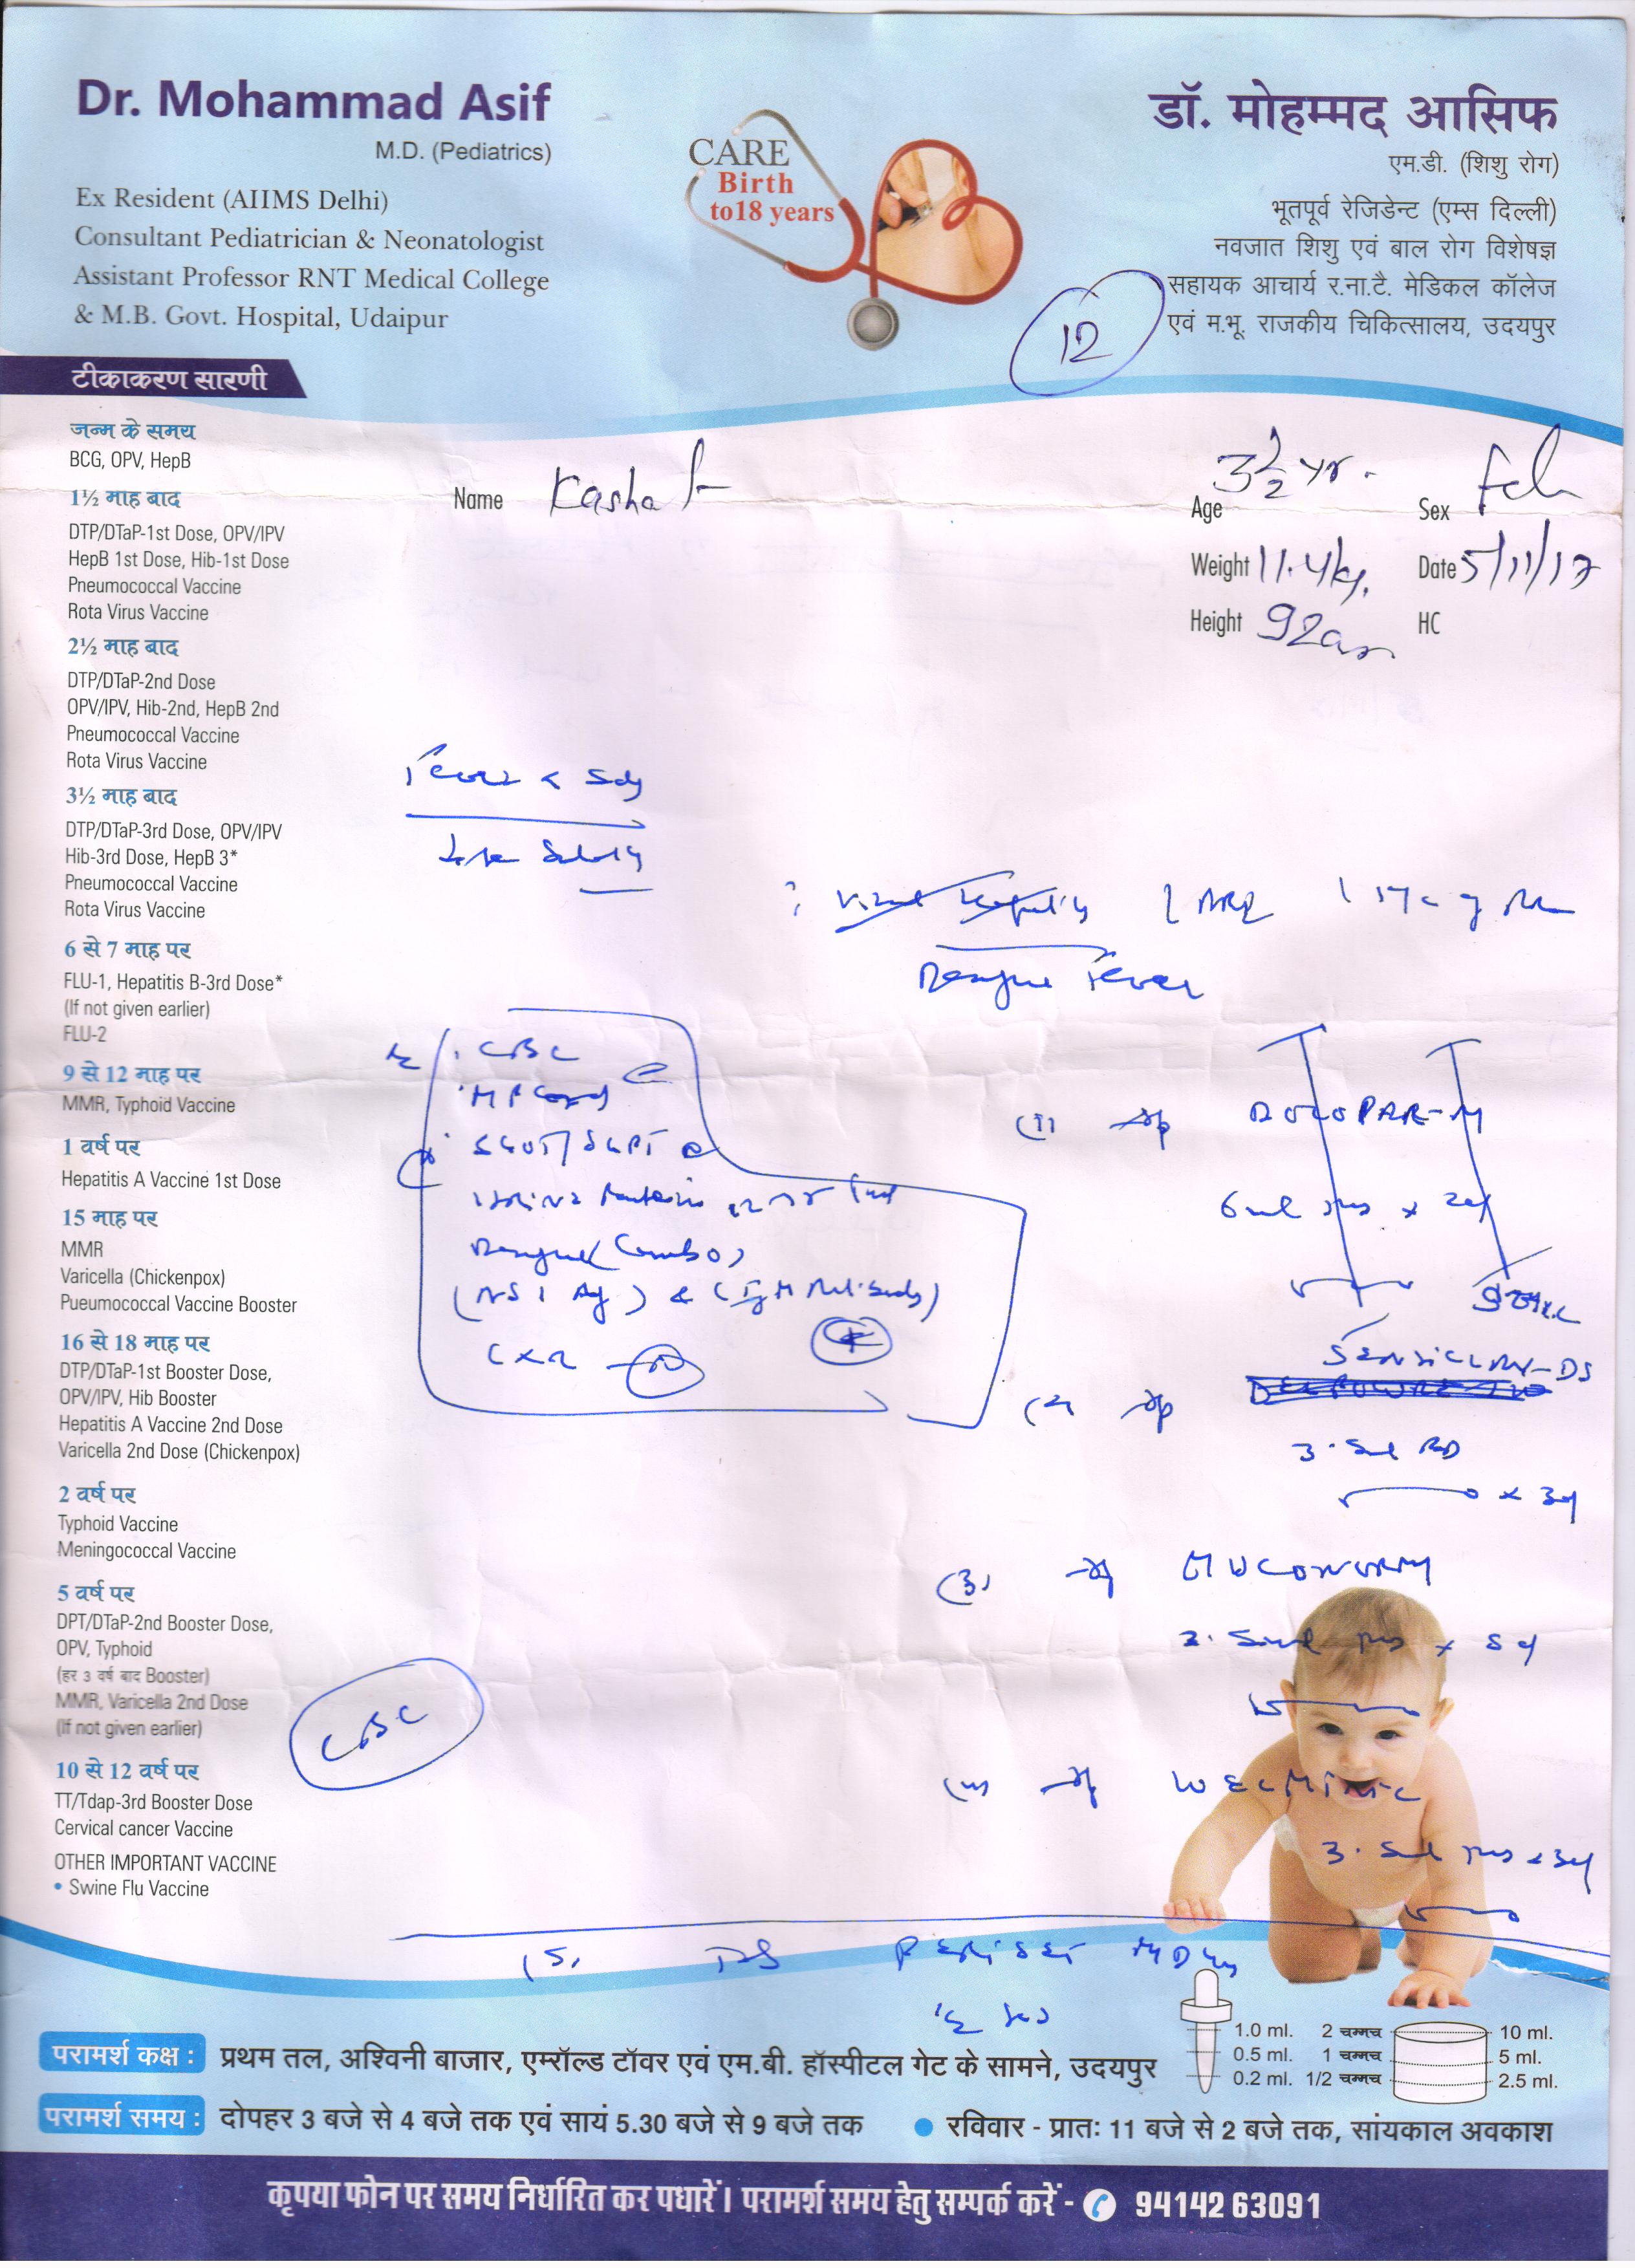 Dr. Mohammad Asif
M.D. (Pediatrics)
Ex Resident (AIIMS Delhi)
Consultant Pediatrician & Neonatologist
Assistant Professor RNT Medical College
& M.B. Govt. Hospital, Udaipur
CARE
Birth
to18 years
डॉ. मोहम्मद आसिफ
एम.डी. (शिशु रोग)
भूतपूर्व रेजिडेन्ट (एम्स दिल्ली)
नवजात शिशु एवं बाल रोग विशेषज्ञ
सहायक आचार्य र.ना.टै. मेडिकल कॉलेज
एवं म.भू. राजकीय चिकित्सालय, उदयपुर
12
टीकाकरण सारणी
जन्म के समय
BCG, OPV, HepB
1½ माह बाद
DTP/DTaP-1st Dose, OPV/IPV
HepB 1st Dose, Hib-1st Dose
Pneumococcal Vaccine
Rota Virus Vaccine
2½ माह बाद
DTP/DTaP-2nd Dose
OPV/IPV, Hib-2nd, HepB 2nd
Pneumococcal Vaccine
Rota Virus Vaccine
3½ माह बाद
DTP/DTaP-3rd Dose, OPV/IPV
Hib-3rd Dose, HepB 3*
Pneumococcal Vaccine
Rota Virus Vaccine
6 से 7 माह पर
FLU-1, Hepatitis B-3rd Dose*
(If not given earlier)
FLU-2
9 से 12 माह पर
MMR, Typhoid Vaccine
1 वर्ष पर
Hepatitis A Vaccine 1st Dose
15 माह पर
MMR
Varicella (Chickenpox)
Pueumococcal Vaccine Booster
16 से 18 माह पर
DTP/DTaP-1st Booster Dose,
OPV/IPV, Hib Booster
Hepatitis A Vaccine 2nd Dose
Varicella 2nd Dose (Chickenpox)
2 वर्ष पर
Typhoid Vaccine
Meningococcal Vaccine
5 वर्ष पर
DPT/DTaP-2nd Booster Dose,
OPV, Typhoid
(हर 3 वर्ष बाद Booster)
MMR, Varicella 2nd Dose
(If not given earlier)
10 से 12 वर्ष पर
TT/Tdap-3rd Booster Dose
Cervical cancer Vaccine
OTHER IMPORTANT VACCINE
• Swine Flu Vaccine
Name Kashaf
Age 3½ yr. Sex
Weight 11.4 kg. Date 5/11/17
Height 92cm HC
Fever < 5dy
Dengue Fever
CBC
MP Card
SGOT/SGPT
Dengue (Combo)
(NS1 Ag) & (IgM
CXR
(1) Syp DOLOPAR-M
6ml
SENSICLAV-DS
(2) Syp
3.5ml BD
x 3d
(3) Syp MUCONORM
2.5ml x 5d
CBC
(4) Syp
3.5ml x 3d
(5)
परामर्श कक्ष : प्रथम तल, अश्विनी बाजार, एम्रॉल्ड टॉवर एवं एम.बी. हॉस्पीटल गेट के सामने, उदयपुर
1.0 ml. 2 चम्मच 10 ml.
0.5 ml. 1 चम्मच 5 ml.
0.2 ml. 1/2 चम्मच 2.5 ml.
परामर्श समय : दोपहर 3 बजे से 4 बजे तक एवं सायं 5.30 बजे से 9 बजे तक • रविवार - प्रातः 11 बजे से 2 बजे तक, सांयकाल अवकाश
कृपया फोन पर समय निर्धारित कर पधारें। परामर्श समय हेतु सम्पर्क करें - 94142 63091